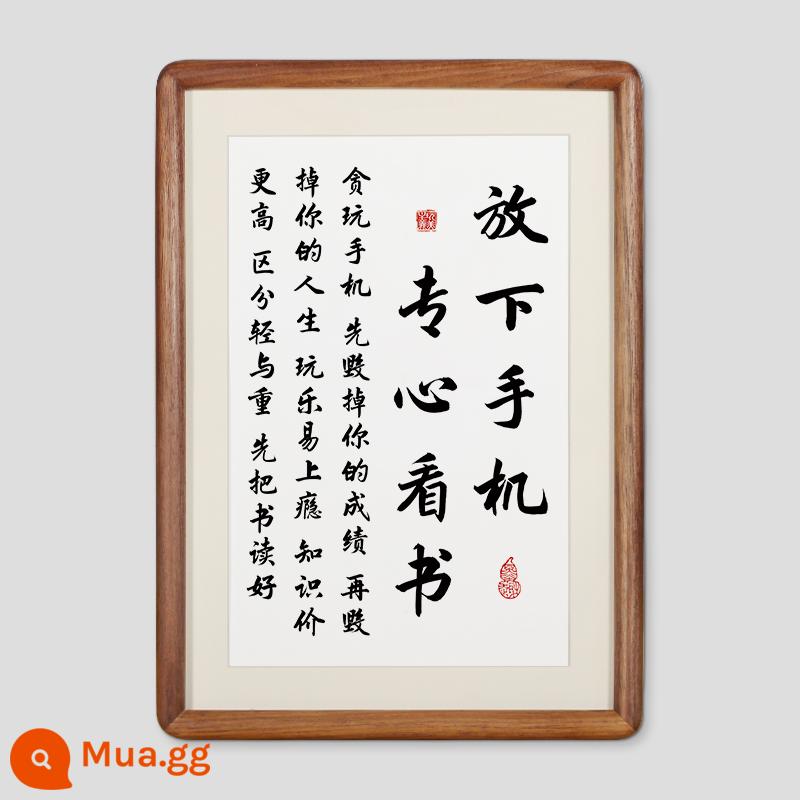 放下手机
专心看书
贪玩手机 先毁掉你的成绩 再毁
掉你的人生 玩乐易上瘾 知识价
更高 区分轻与重 先把书读好
Mua.gg